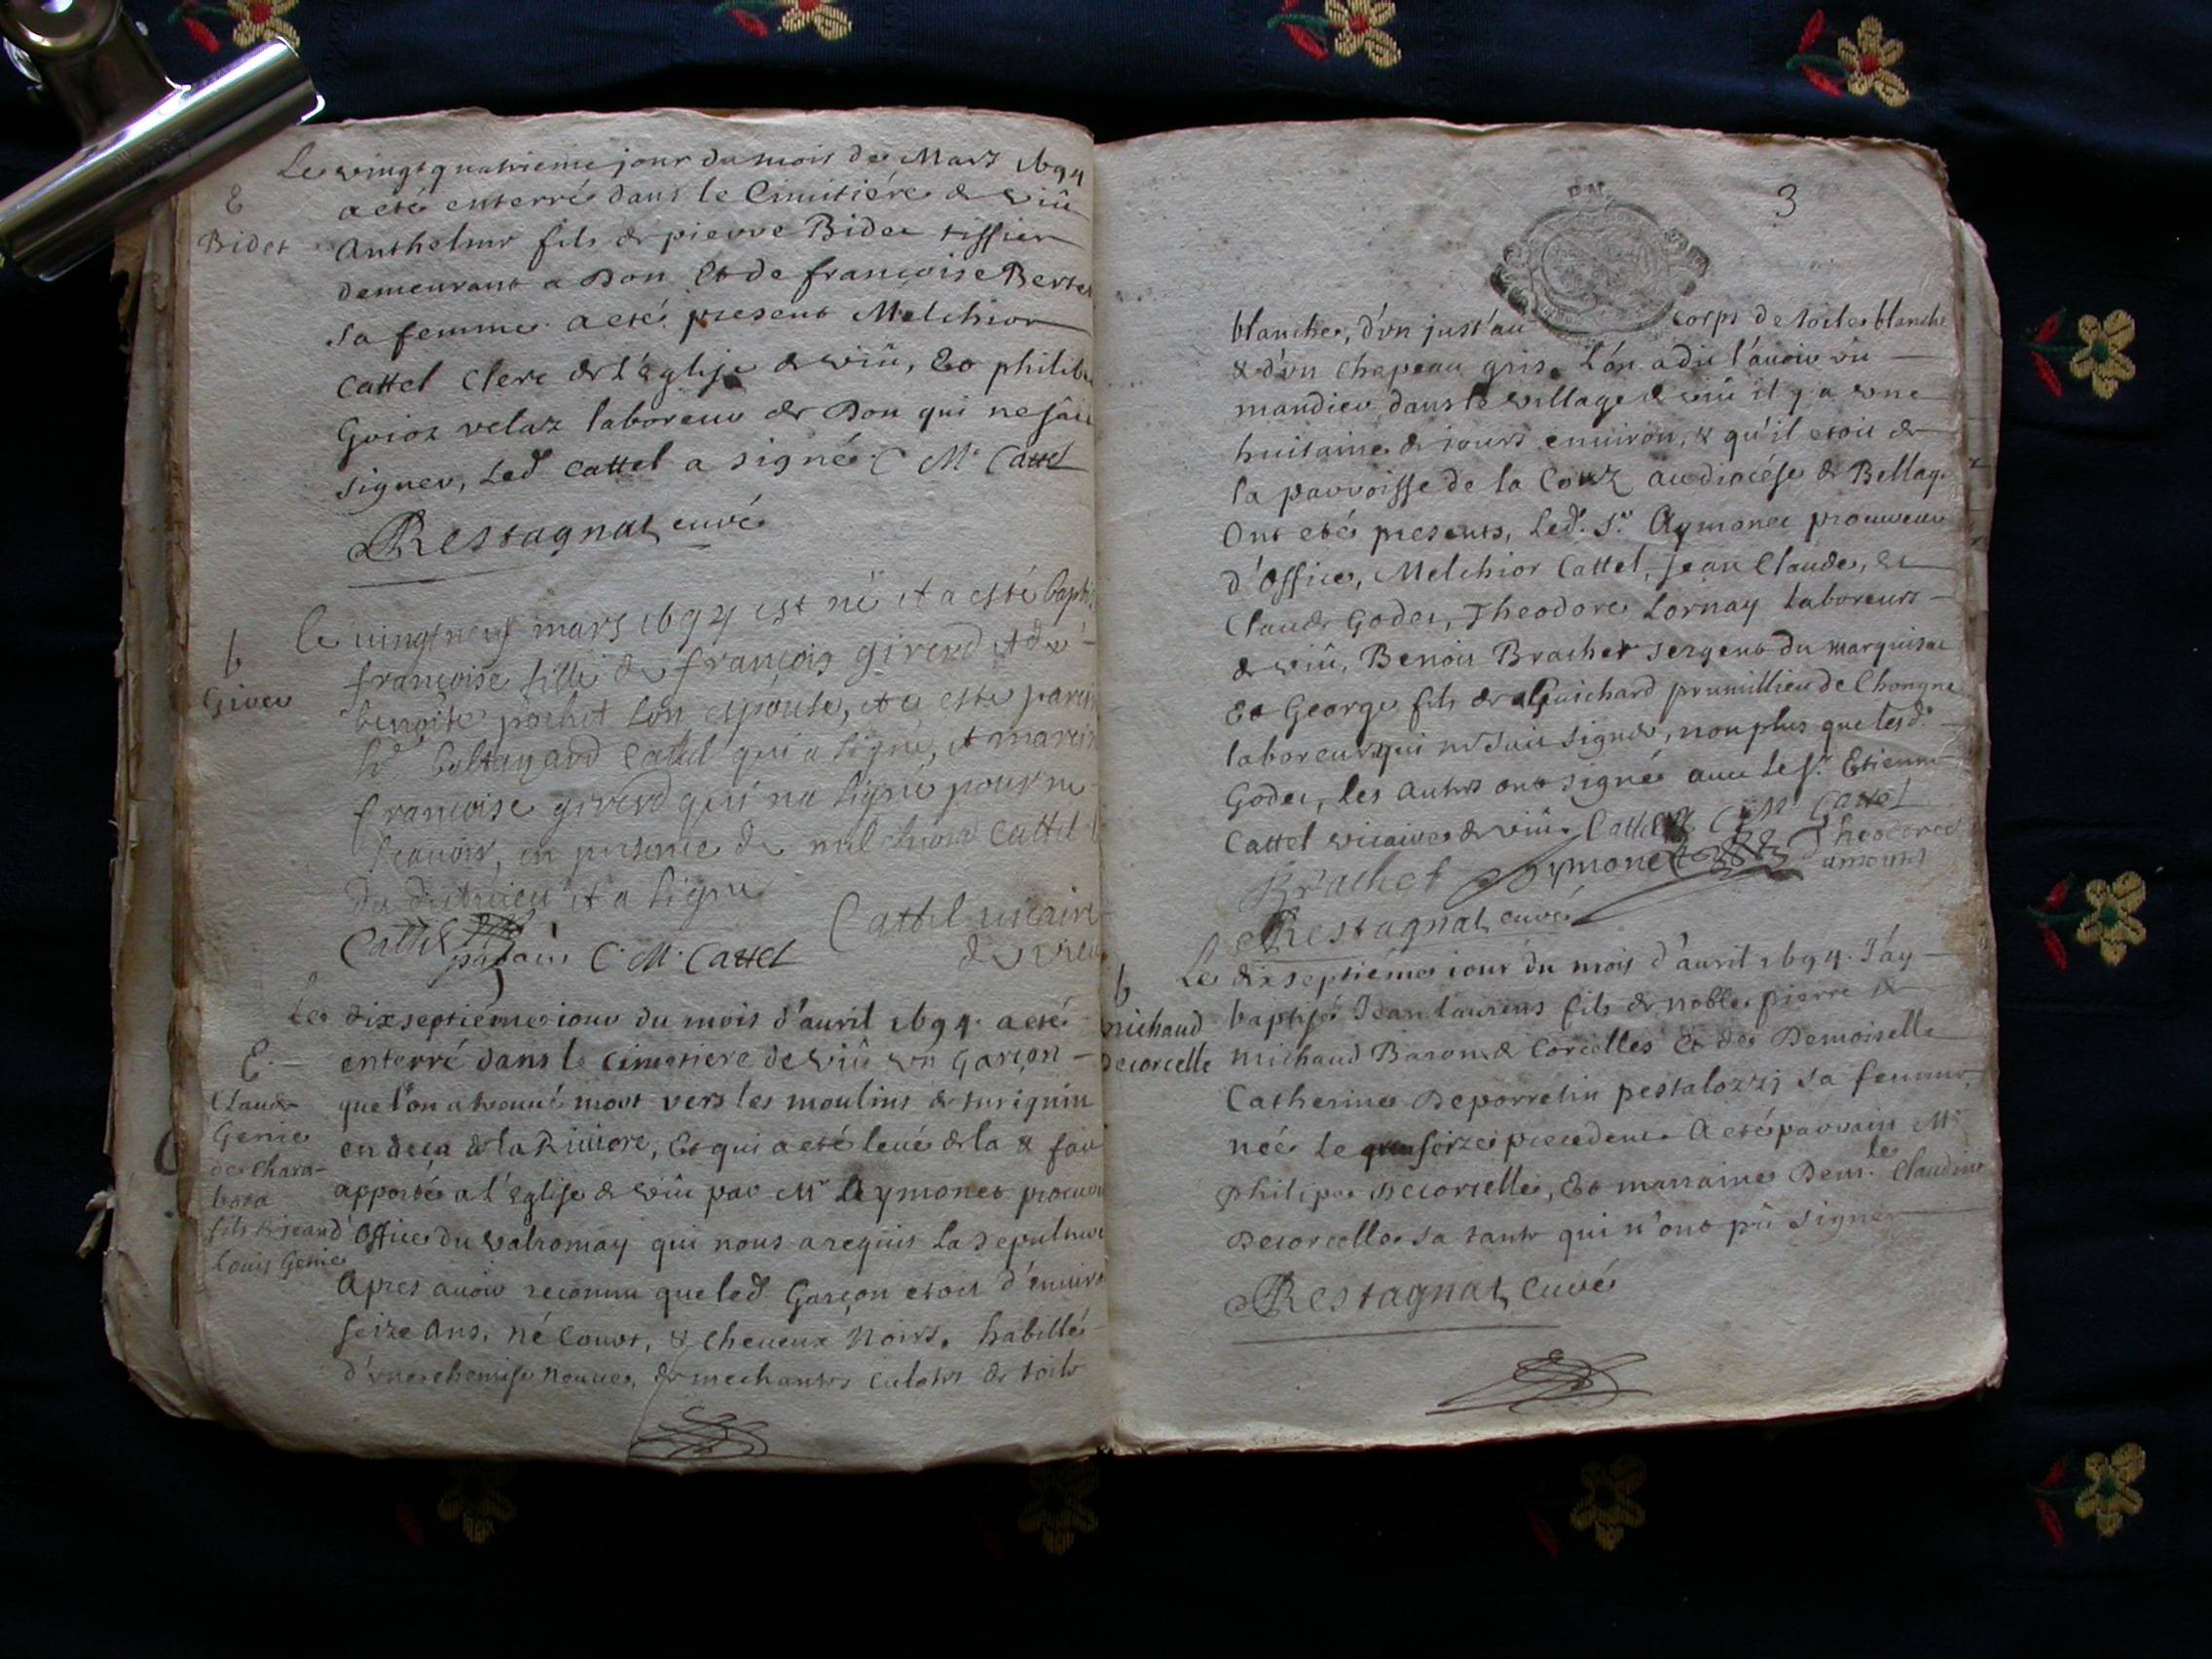 Le vingt quatrieme jour du mois de Mars 1694
E
a eté enterré dans le Cimitiére de viû
Bidet
Anthelme fils de pierre Bidet tissier
demeurant a Don Et de françoise Berte
sa femme. a eté present Melchior
Cattel Clerc de l'Eglise de viû, Et philib
Guioz velaz laboreur de Don qui ne sau
signer, Led. Cattel a signé. C M. Cattel
Restagnat curé
le vingt neuf mars 1694 est né et a esté bapti
b
françoise fille de françois girerd et de
Girer
benoite pochet son espouse, et a esté parein
Cattel qui a signé, et marein
françoise girerd qui na signé pour ne
scavoir, en presence de melchior Cattel
du dit vieu et a signé
Cattel vicaire
de vieu
Cattel
parain C. M. Cattel
Le dixseptiéme iour du mois d'auril 1694. a eté
E.
enterré dans le cimetiere de viû vn Garçon
Claude
Genie
de Chara-
bota
fils de jean
louis Genie
que l'on a trouué mort vers les moulins de turignin
en deca de la Riuiere, Et qui a eté leué de la & fait
apporté a l'Eglise de viû par Mr Aymonet procur
d'Office du valromay qui nous a requis la sepulture
Apres auoir reconnu que led. Garçon etoit d'enuiro
seize Ans, né Court, & cheueux Noirs, habillé
d'vne chemise neuue, de mechantes culotes de toile
3
blanche, d'vn just'au corps de toile blanche
& d'vn chapeau gris. L'on a dit l'auoir vû
mandier dans le village de viû il y a vne
huitaine de iours enuiron, & qu'il etoit de
la parroisse de la Couz au diocése de Bellay.
Ont etés presents, Led. Sr. Aymonet procureur
d'Office, Melchior Cattel, Jean Claude, &
Claude Godet, Theodore Lornay Laboreurs
de viû, Benoit Brachet sergent du marquisat
Et George fils de Guichard prumillieu de Chongne
laboreurs qui ne sait signer, non plus que lesd.
Godet, les autres ont signé auec le Sr. Etienne
Cattel vicaire de viû. Cattel C. M. Cattel
Brachet Aymonet Theodore
Restagnat curé
Le dix septiéme iour du mois d'auril 1694. J'ay
b
michaud
Decorcelle
baptisé Jean laurens fils de noble pierre de
michaud Baron de Corcelles Et de Demoiselle
Catherine Deporretin pestalozzj sa femme,
née le seize precedent. A eté parrain Mr
philipe Decorcelle, Et marraine Demle Claudine
Decorcelle sa tante qui n'ont pû signer
Restagnat curé